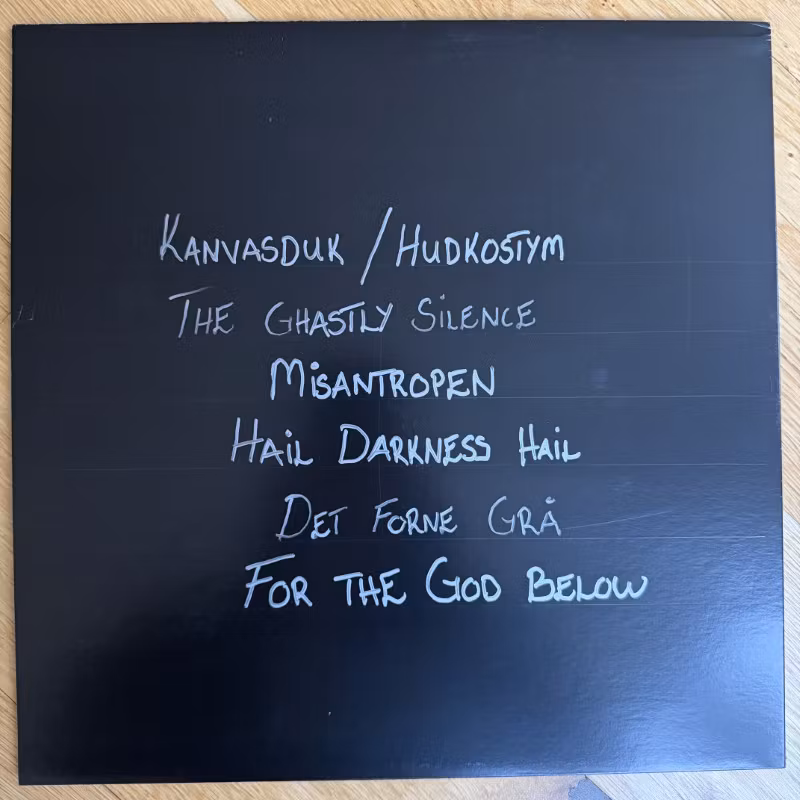 KANVASDUK / HUDKOSTYM
THE GHASTLY SILENCE
MiSANTROPEN
HAiL DARKNESS HAiL
DET FORNE GRÅ
FOR THE GOD BELOW